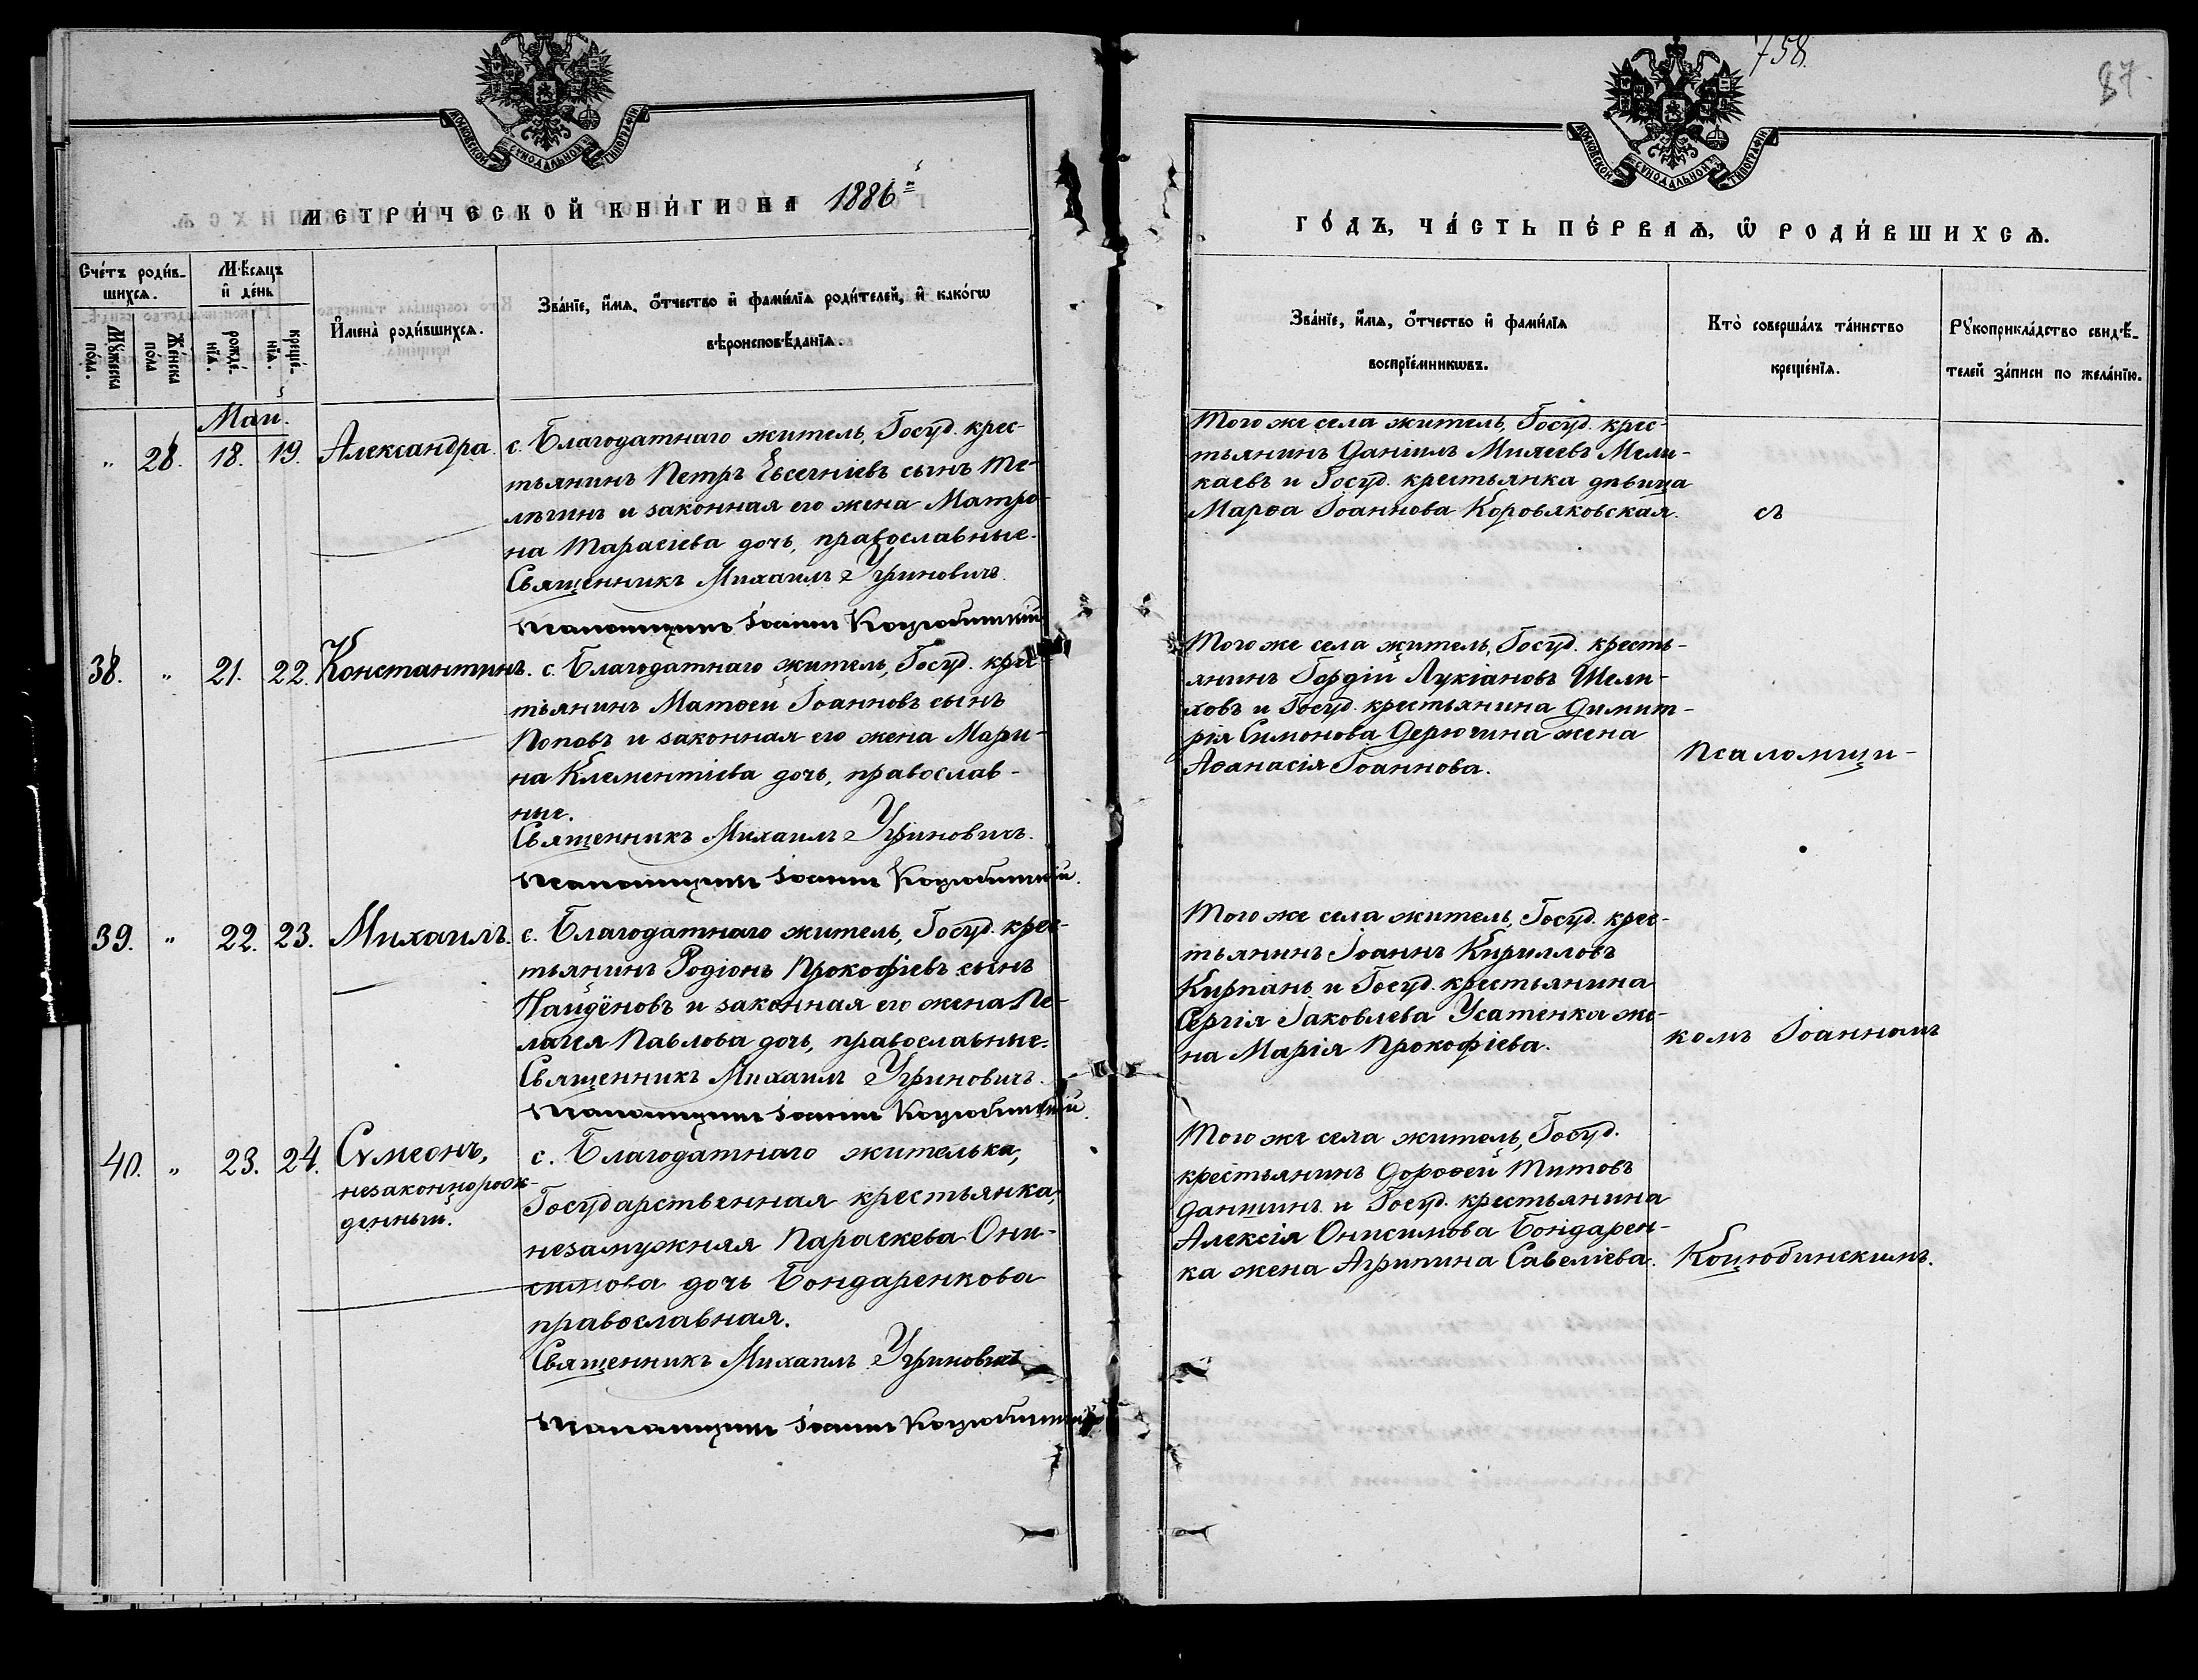 758.
87.
МОСКОВСКОЙ СѴНОДАЛЬНОЙ ТИПОГРАФІИ
МОСКОВСКОЙ СѴНОДАЛЬНОЙ ТИПОГРАФІИ
МЕТРИ́ЧЕСКОЙ КНИ́ГИ НА 1886й
ГО́ДЪ, ЧА́СТЬ ПЕ́РВАѦ, Ѡ РОДИ́ВШИХСѦ.
Сче́тъ роди́в-
шихсѧ.
Мѣ́сѧцъ
и де́нь
Мꙋжеска
по́ла.
Же́нска
по́ла
рожде́-
нїѧ.
креще́-
нїѧ.
Имена̀ роди́вшихсѧ.
Зва́нїе, и́мѧ, о́тчество и фами́лїѧ роди́телей, и како́гѡ
вѣроисповѣ́данїѧ.
Зва́нїе, и́мѧ, о́тчество и фами́лїѧ
воспрїе́мникѡвъ.
Кто̀ соверша́лъ та́инство
креще́нїѧ.
Рꙋкоприкла́дство свидѣ́-
телей за́писи по жела́нїю.
Май.
" 28. 18. 19. Александра.
с. Благодатнаго житель, Госуд. крес-
тьянинъ Петръ Евсегніевъ сынъ Те-
лѣгинъ и законная его жена Матро-
на Тарасіева дочь, православные.
Священникъ Михаилъ Угриновичъ.
Псаломщикъ Іоаннъ Коцюбинскій
Того же села житель, Госуд. крес-
тьянинъ Даніилъ
каевъ и Госуд. крестьянка дѣвица
Марѳа Іоаннова Коровяковская.
съ
38. " 21. 22. Константинъ.
с. Благодатнаго житель, Госуд. крес-
тьянинъ Матѳей Іоанновъ сынъ
Поповъ и законная его жена Мари-
на Клементіева дочь, православ-
ные.
Священникъ Михаилъ Угриновичъ.
Псаломщикъ Іоаннъ Коцюбинскій.
Того же села житель, Госуд. кресть-
янинъ Гордій Лукіановъ Шели-
ховъ и Госуд. крестьянина Димит-
рія Симонова Дерюгина жена
Аѳанасія Іоаннова.
псаломщи-
39. " 22. 23. Михаилъ.
с. Благодатнаго житель, Госуд. крес-
тьянинъ Родіонъ Прокофіевъ сынъ
Найдёновъ и законная его жена Пе-
лагея Павлова дочь, православные.
Священникъ Михаилъ Угриновичъ.
Псаломщикъ Іоаннъ Коцюбинскій.
Того же села житель, Госуд. крес-
тьянинъ Іоаннъ Кирилловъ
Кирпанъ и Госуд. крестьянина
Сергія Іаковлева Усатенка же-
на Марія Прокофіева.
комъ Іоанномъ
40. " 23. 24. Сѵмеонъ,
незаконнорож-
денный.
с. Благодатнаго жителька,
Государственная крестьянка,
незамужняя Параскева Они-
симова дочь Бондаренкова
православная.
Священникъ Михаилъ Угриновичъ
Псаломщикъ Іоаннъ Коцюбинскій
Того же села житель, Госуд.
крестьянинъ Дороѳей Титовъ
Даншинъ и Госуд. крестьянина
Алексія Онисимова Бондарен-
ка жена Агрипина Савеліева.
Коцюбинскимъ.